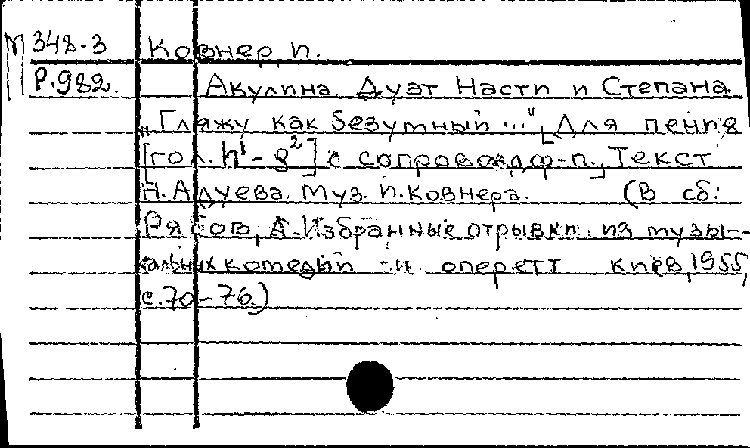 М 348-3 Ковнер, И.
Р.982. Акулина. Дуэт Насти и Степана
„Гляжу как безумный..." Для пения
[гол. h¹-g²] с сопровожд. ф-п., Текст
Н. Адуева. Муз. И. Ковнера. (В сб:
Рябов, А. Избранные отрывки из музы-
кальных комедий и оперетт Киев, 1955,
с.70-76.)